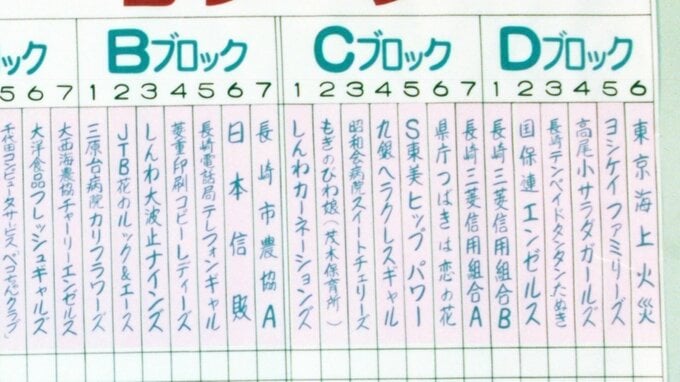 ック Bブロック Cブロック Dブロック
5 6 7 1 2 3 4 5 6 7 1 2 3 4 5 6 7 1 2 3 4 5 6
大洋食品フレッシュギャルズ
大西海農協チャーリーエンゼルス
三原台病院カリフラワーズ
JTB花のルック&エース
しんわ大波止ナインズ
菱重印刷コピーレディーズ
長崎電話局テレフォンギャル
日本信販
長崎市農協A
しんわカーネーションズ
もぎのびわ娘(茂木保育所)
昭和会病院スイートチェリーズ
九銀ヘラクレスギャル
S東美ヒップパワー
県庁つばきは恋の花
長崎三菱信用組合A
長崎三菱信用組合B
国保連エンゼルス
長崎テンペイドタンタンたぬき
高尾小サラダガールズ
ヨシケイファミリーズ
東京海上火災